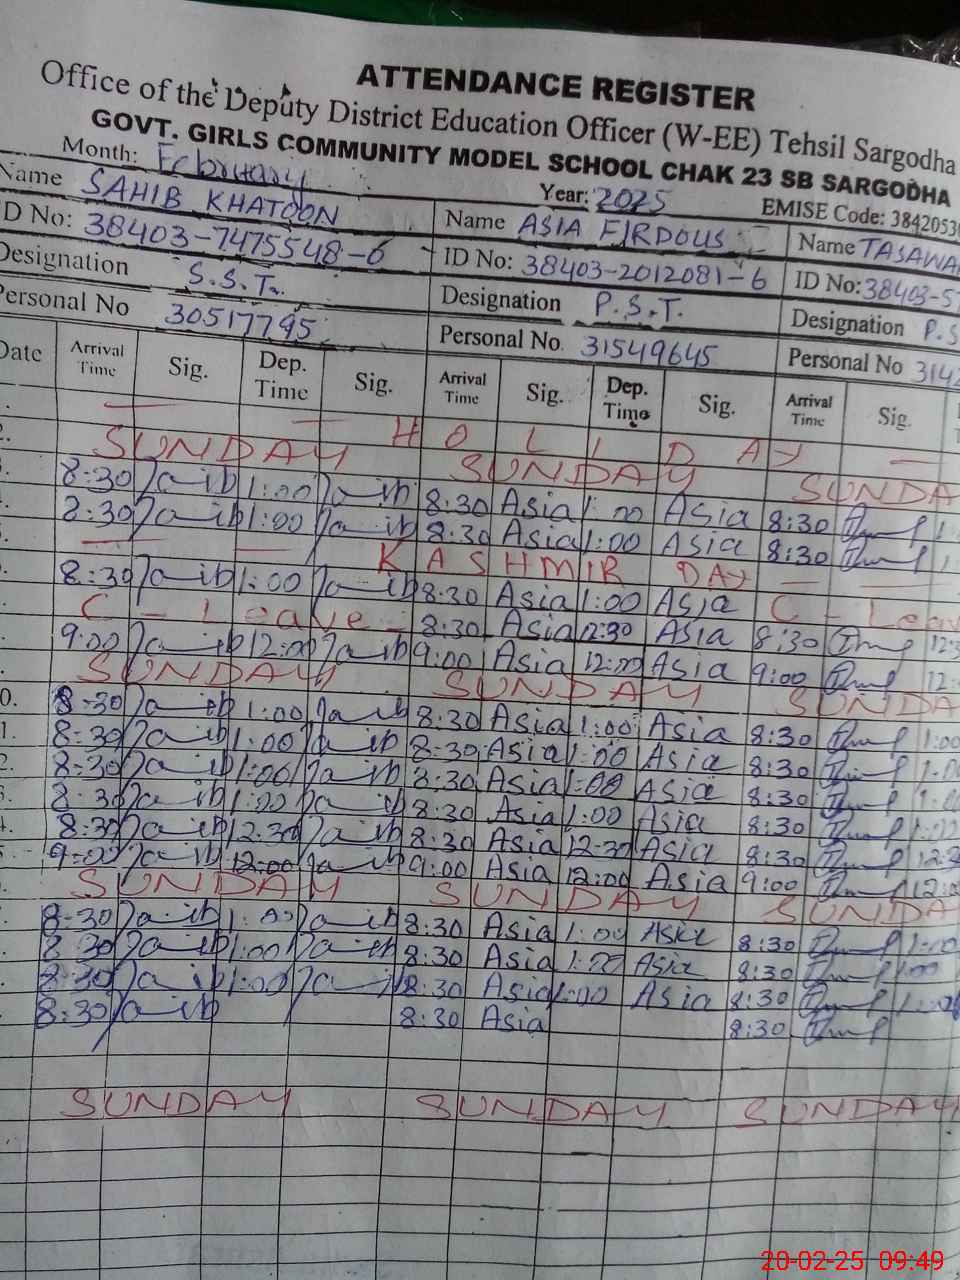 ATTENDANCE REGISTER
Office of the Deputy District Education Officer (W-EE) Tehsil Sargodha
GOVT. GIRLS COMMUNITY MODEL SCHOOL CHAK 23 SB SARGODHA
Month: February Year: 2025 EMISE Code: 3842053
Name SAHIB KHATOON Name ASIA FIRDOUS Name TASAWA
ID No: 38403-7475548-6 ID No: 38403-2012081-6 ID No: 38403-5
Designation S.S.T. Designation P.S.T. Designation P.S
Personal No 30517795 Personal No. 31549645 Personal No 314
Date Arrival Time Sig. Dep. Time Sig. Arrival Time Sig. Dep. Time Sig. Arrival Time Sig.
— — HOLIDAY —
2. SUNDAY SUNDAY SUNDA
8:30 1:00 8:30 Asia 1:00 Asia 8:30 1:
8:30 1:00 8:30 Asia 1:00 Asia 8:30 1:
— — KASHMIR DAY — —
8:30 1:00 8:30 Asia 1:00 Asia C-Leav
C-Leave- 8:30 Asia 12:30 Asia 8:30 12:3
9:00 12:00 9:00 Asia 12:00 Asia 9:00 12:
SUNDAY SUNDAY SUNDA
0. 8:30 1:00 8:30 Asia 1:00 Asia 8:30 1:00
1. 8:30 1:00 8:30 Asia 1:00 Asia 8:30 1:00
2. 8:30 1:00 8:30 Asia 1:00 Asia 8:30 1:0
3. 8:30 1:00 8:30 Asia 1:00 Asia 8:30 1:00
4. 8:30 12:30 8:30 Asia 12:30 Asia 8:30 12:3
9:00 12:00 9:00 Asia 12:00 Asia 9:00 12:0
SUNDAY SUNDAY SUNDA
8:30 1:00 8:30 Asia 1:00 Asia 8:30 1:00
8:30 1:00 8:30 Asia 1:00 Asia 8:30 1:00
8:30 1:00 8:30 Asia 1:00 Asia 8:30 1:00
8:30 8:30 Asia 8:30
SUNDAY SUNDAY SUNDAY
20-02-25 09:49